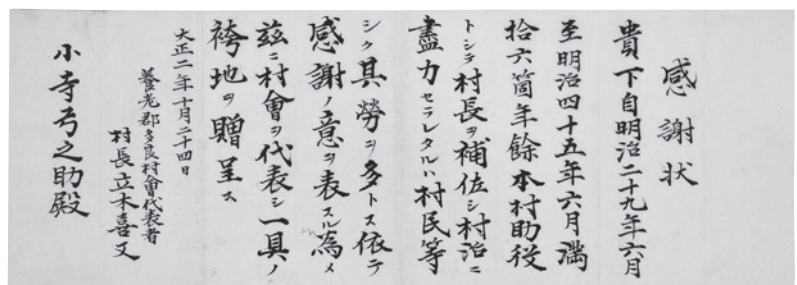 感謝状
貴下自明治二十九年六月
至明治四十五年六月満
拾六箇年餘本村助役
トシテ村長ヲ補佐シ村治ニ
盡力セラレタルハ村民等
シク具勞ヲ多トス依テ
感謝ノ意ヲ表スル為メ
茲ニ村會ヲ代表シ一具ノ
袴地ヲ贈呈ス
大正二年十月二十四日
養老郡多良村會代表者
村長立木喜又
小寺弓之助殿